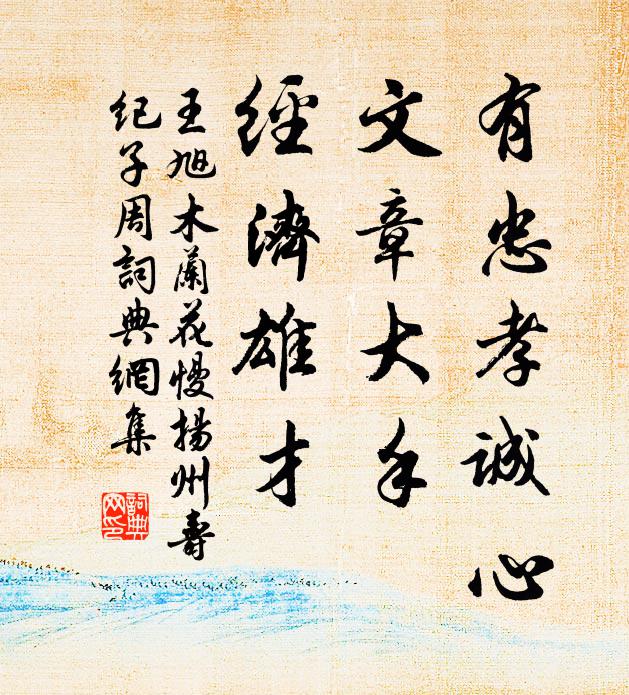 有忠孝誠心
文章大手
經濟雄才
王旭木蘭花慢揚州壽
紀子周詞典網集
詞典
网印